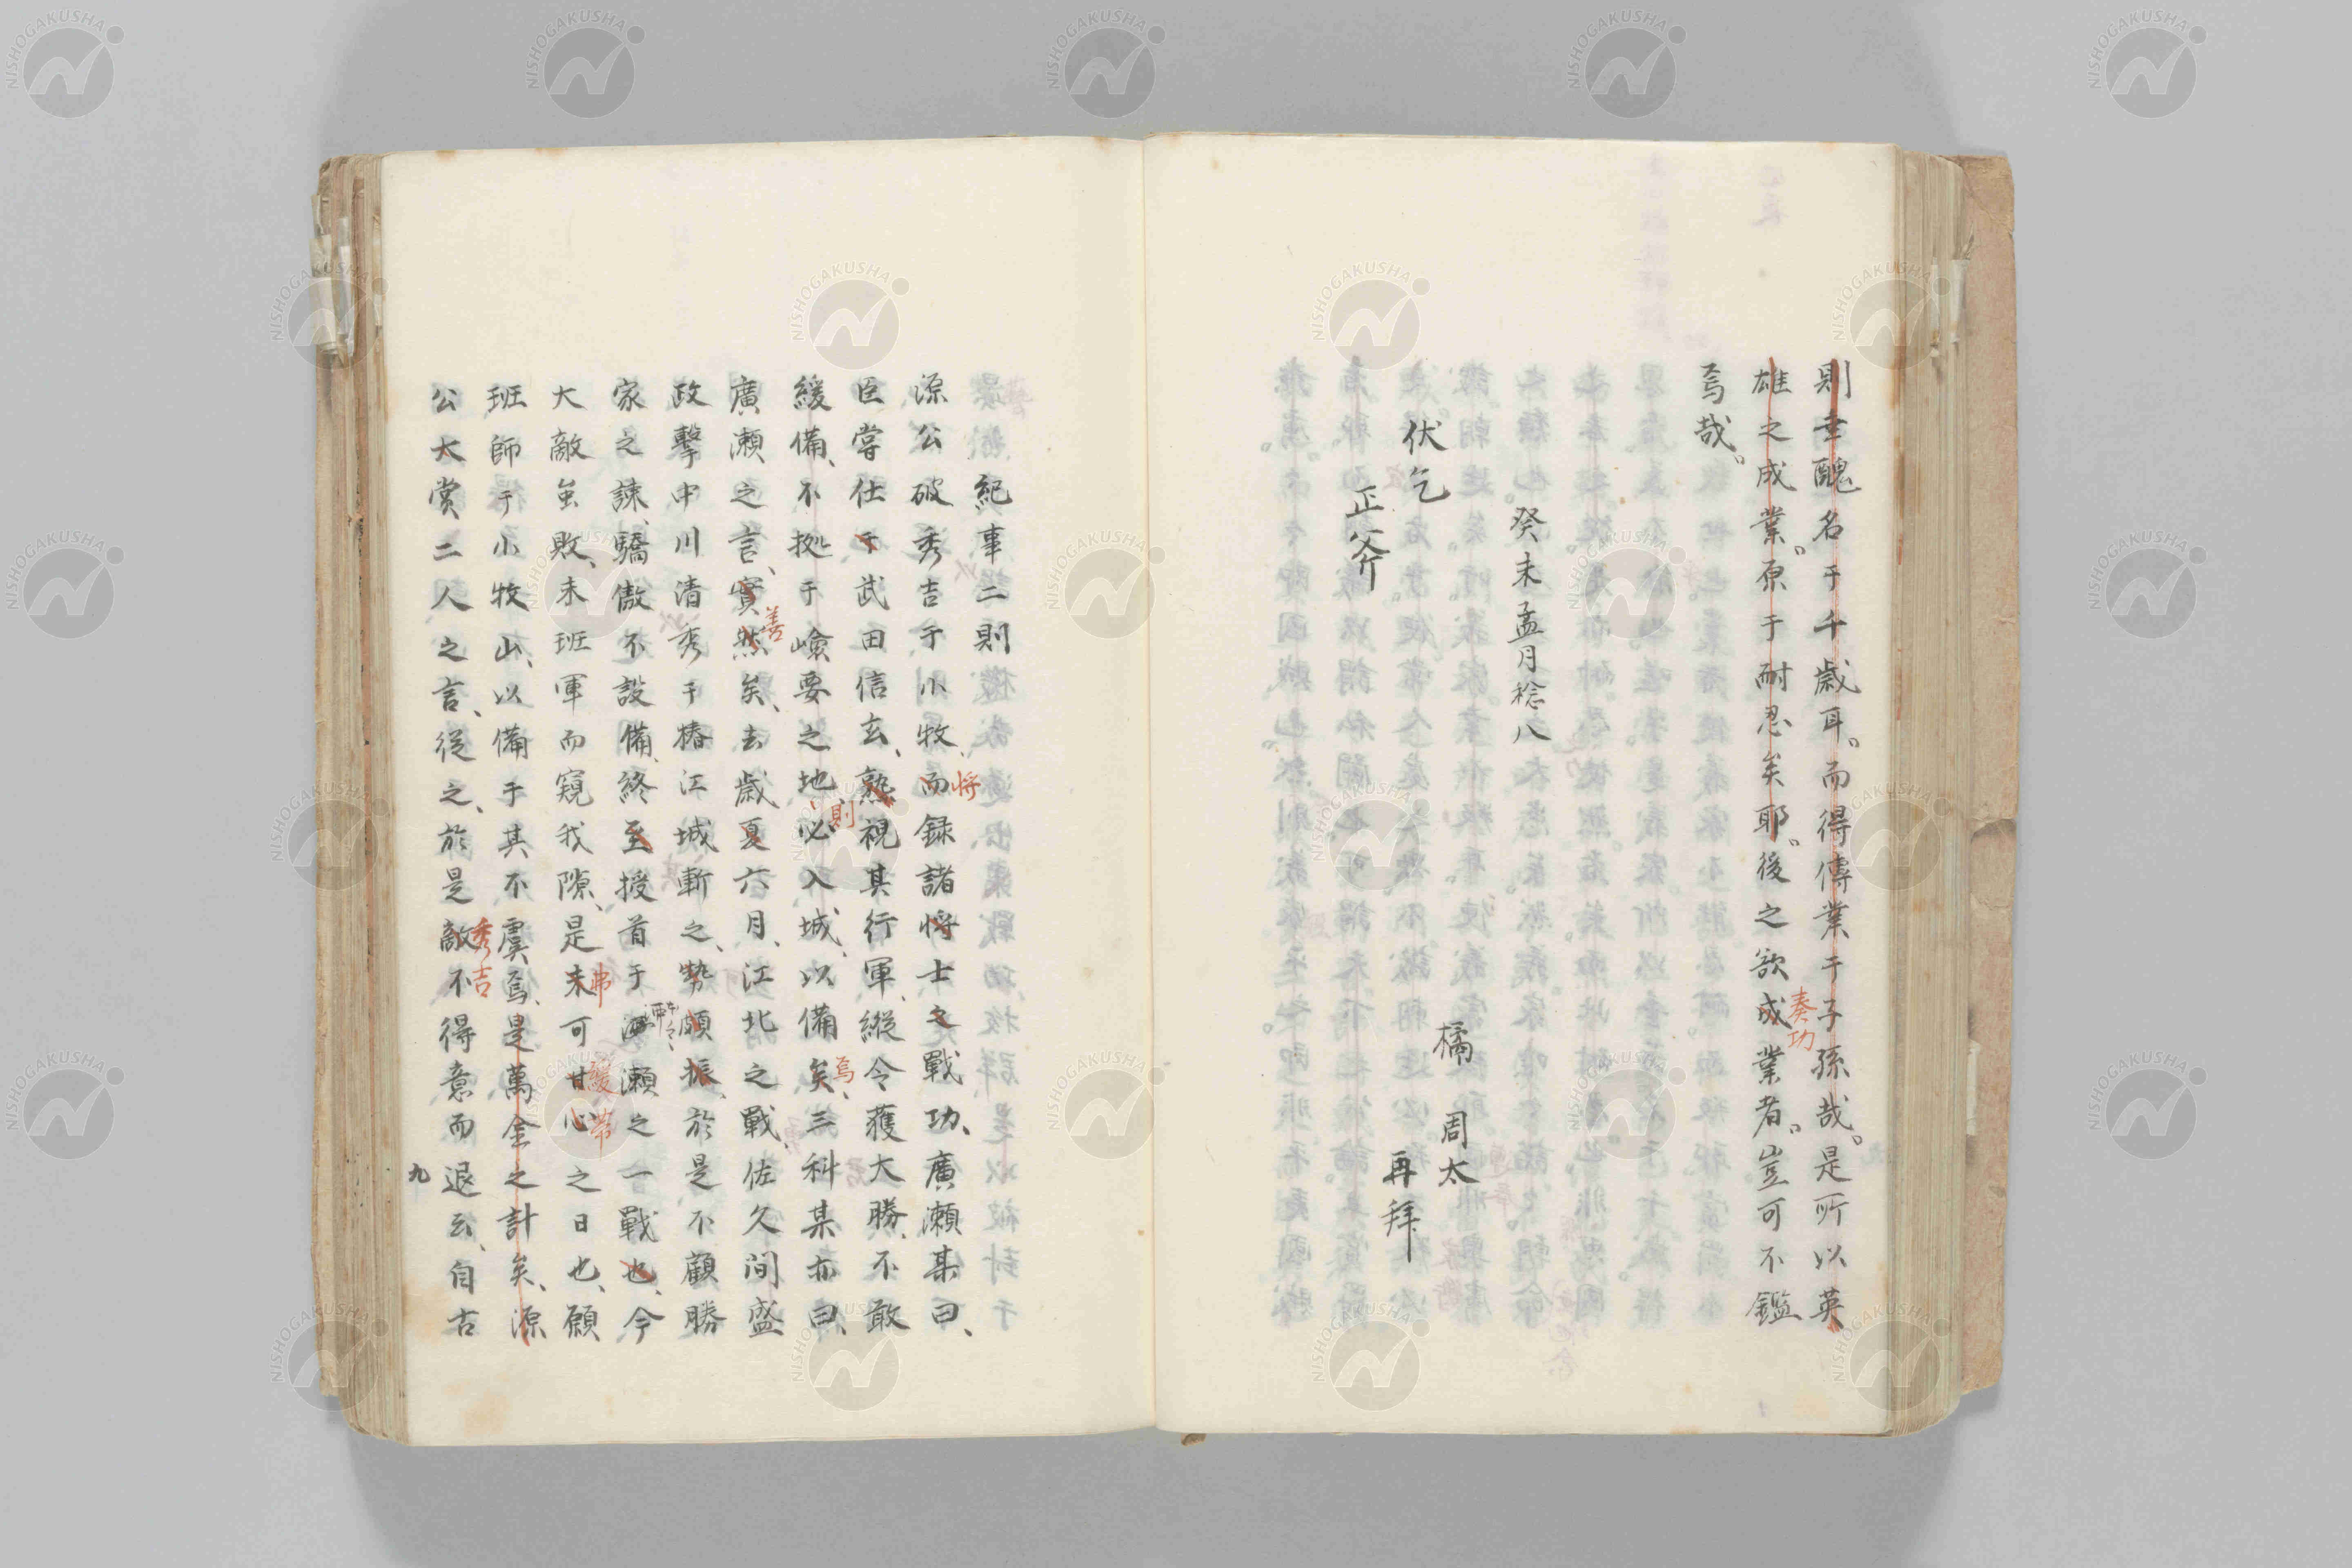 則壬醜名于千歳耳。而得傳業于子孫哉。是所以英
雄之成業。原于耐忍矣耶。後之欲成業者。豈可不鑑
奏功
焉哉。
癸未孟月稔八
橘 周太
伏乞
再拜
正斧
紀事二則
源公破秀吉于小牧、而録諸将士之戰功、廣瀬某曰、
将
臣嘗仕于武田信玄、熟視其行軍、縦令獲大勝、不敢
緩備、不拠于嶮要之地、必入城、以備矣、三科某亦曰、
則
焉
廣瀬之言、實然矣、去歳夏六月、江北之戰、佐久間盛
善
政撃中川清秀于椿江城斬之、勢頗振、於是不顧勝
家之諌、驕傲不設備、終至授首于瀬之一戰也、今
大敵虽敗、未班軍而窺我隙、是未可甘心之日也、願
弗
緩帯
班師于小牧山、以備于其不虞焉、是萬全之計矣、源
公大賞二人之言、従之、於是敵不得意而退云、自古
秀吉
九
NISHOGAKUSHA